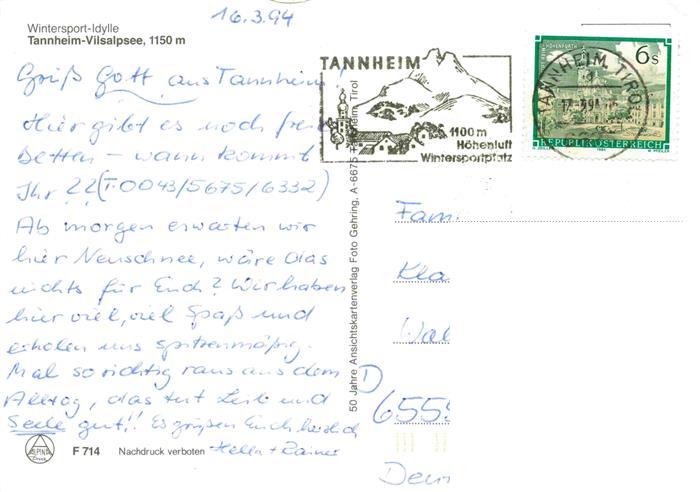 16.3.94
Wintersport-Idylle
Tannheim-Vilsalpsee, 1150 m
Grüß Gott aus Tannheim!
Hier gibt es noch freie
Betten – wann kommt
Ihr ?? (T. 0043/5675/6332)
Ab morgen erwarten wir
hier Neuschnee, wäre das
nichts für Euch? Wir haben
hier viel, viel Spaß und
erholen uns spitzenmäßig.
Mal so richtig raus aus dem
Alltag, das tut Leib und
Seele gut!! Es grüßen Euch herzlich
Hella + Rainer
F 714 Nachdruck verboten
50 Jahre Ansichtskartenverlag Foto Gehring, A-6675 Tannheim, Tirol
TANNHEIM
1100 m
Höhenluft
Wintersportplatz
6 S
TANNHEIM TIROL
REPUBLIK ÖSTERREICH
Fam
Kla
Wal
D
6555
Deu